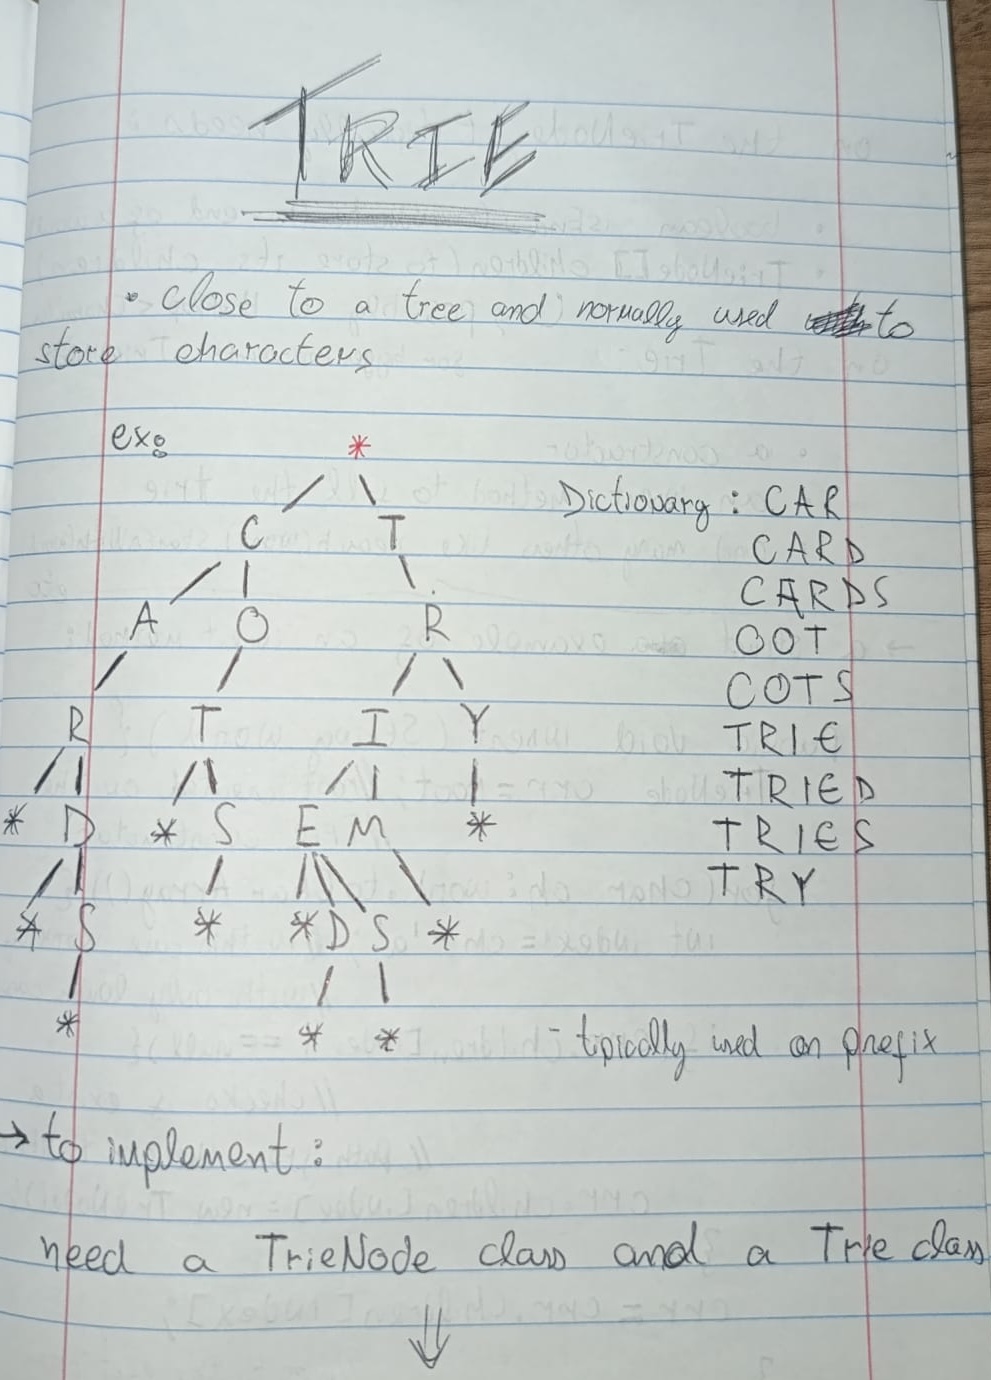 TRIE
• close to a tree and normally used to
store characters
ex:
*
C T
A O R
R T I Y
* D * S E M *
* S * * D S *
* * *
Dictionary : CAR
CARD
CARDS
COT
COTS
TRIE
TRIED
TRIES
TRY
- tipically used on prefix
→ to implement :
need a TrieNode class and a Trie class
⇓